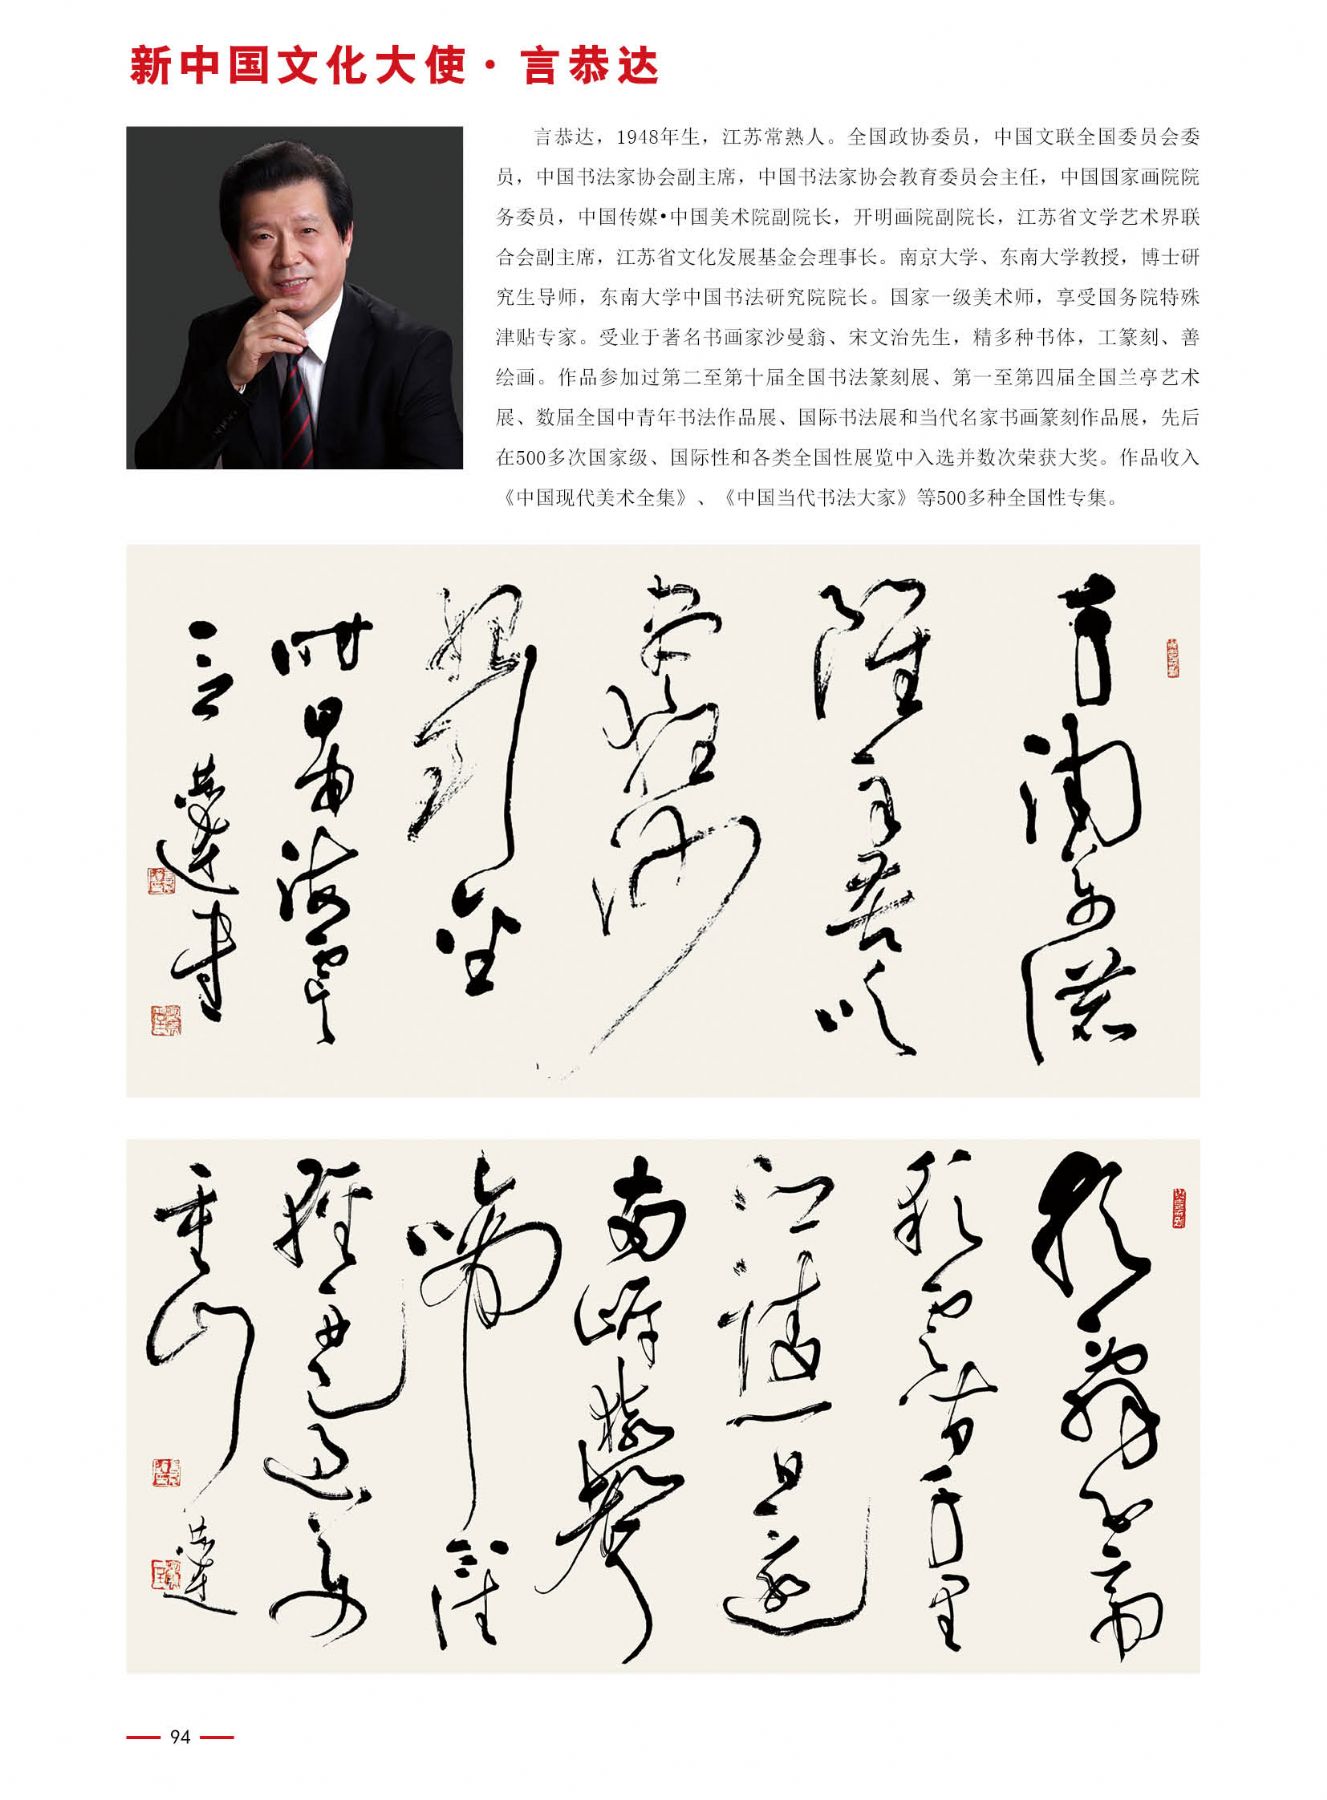 新中国文化大使·言恭达
言恭达，1948年生，江苏常熟人。全国政协委员，中国文联全国委员会委
员，中国书法家协会副主席，中国书法家协会教育委员会主任，中国国家画院院
务委员，中国传媒•中国美术院副院长，开明画院副院长，江苏省文学艺术界联
合会副主席，江苏省文化发展基金会理事长。南京大学、东南大学教授，博士研
究生导师，东南大学中国书法研究院院长。国家一级美术师，享受国务院特殊
津贴专家。受业于著名书画家沙曼翁、宋文治先生，精多种书体，工篆刻、善
绘画。作品参加过第二至第十届全国书法篆刻展、第一至第四届全国兰亭艺术
展、数届全国中青年书法作品展、国际书法展和当代名家书画篆刻作品展，先后
在500多次国家级、国际性和各类全国性展览中入选并数次荣获大奖。作品收入
《中国现代美术全集》、《中国当代书法大家》等500多种全国性专集。
恭達書
朝辭白帝
彩雲間千里
江陵一日還
兩岸猿聲
啼不住
輕舟已過萬
重山
恭達
94